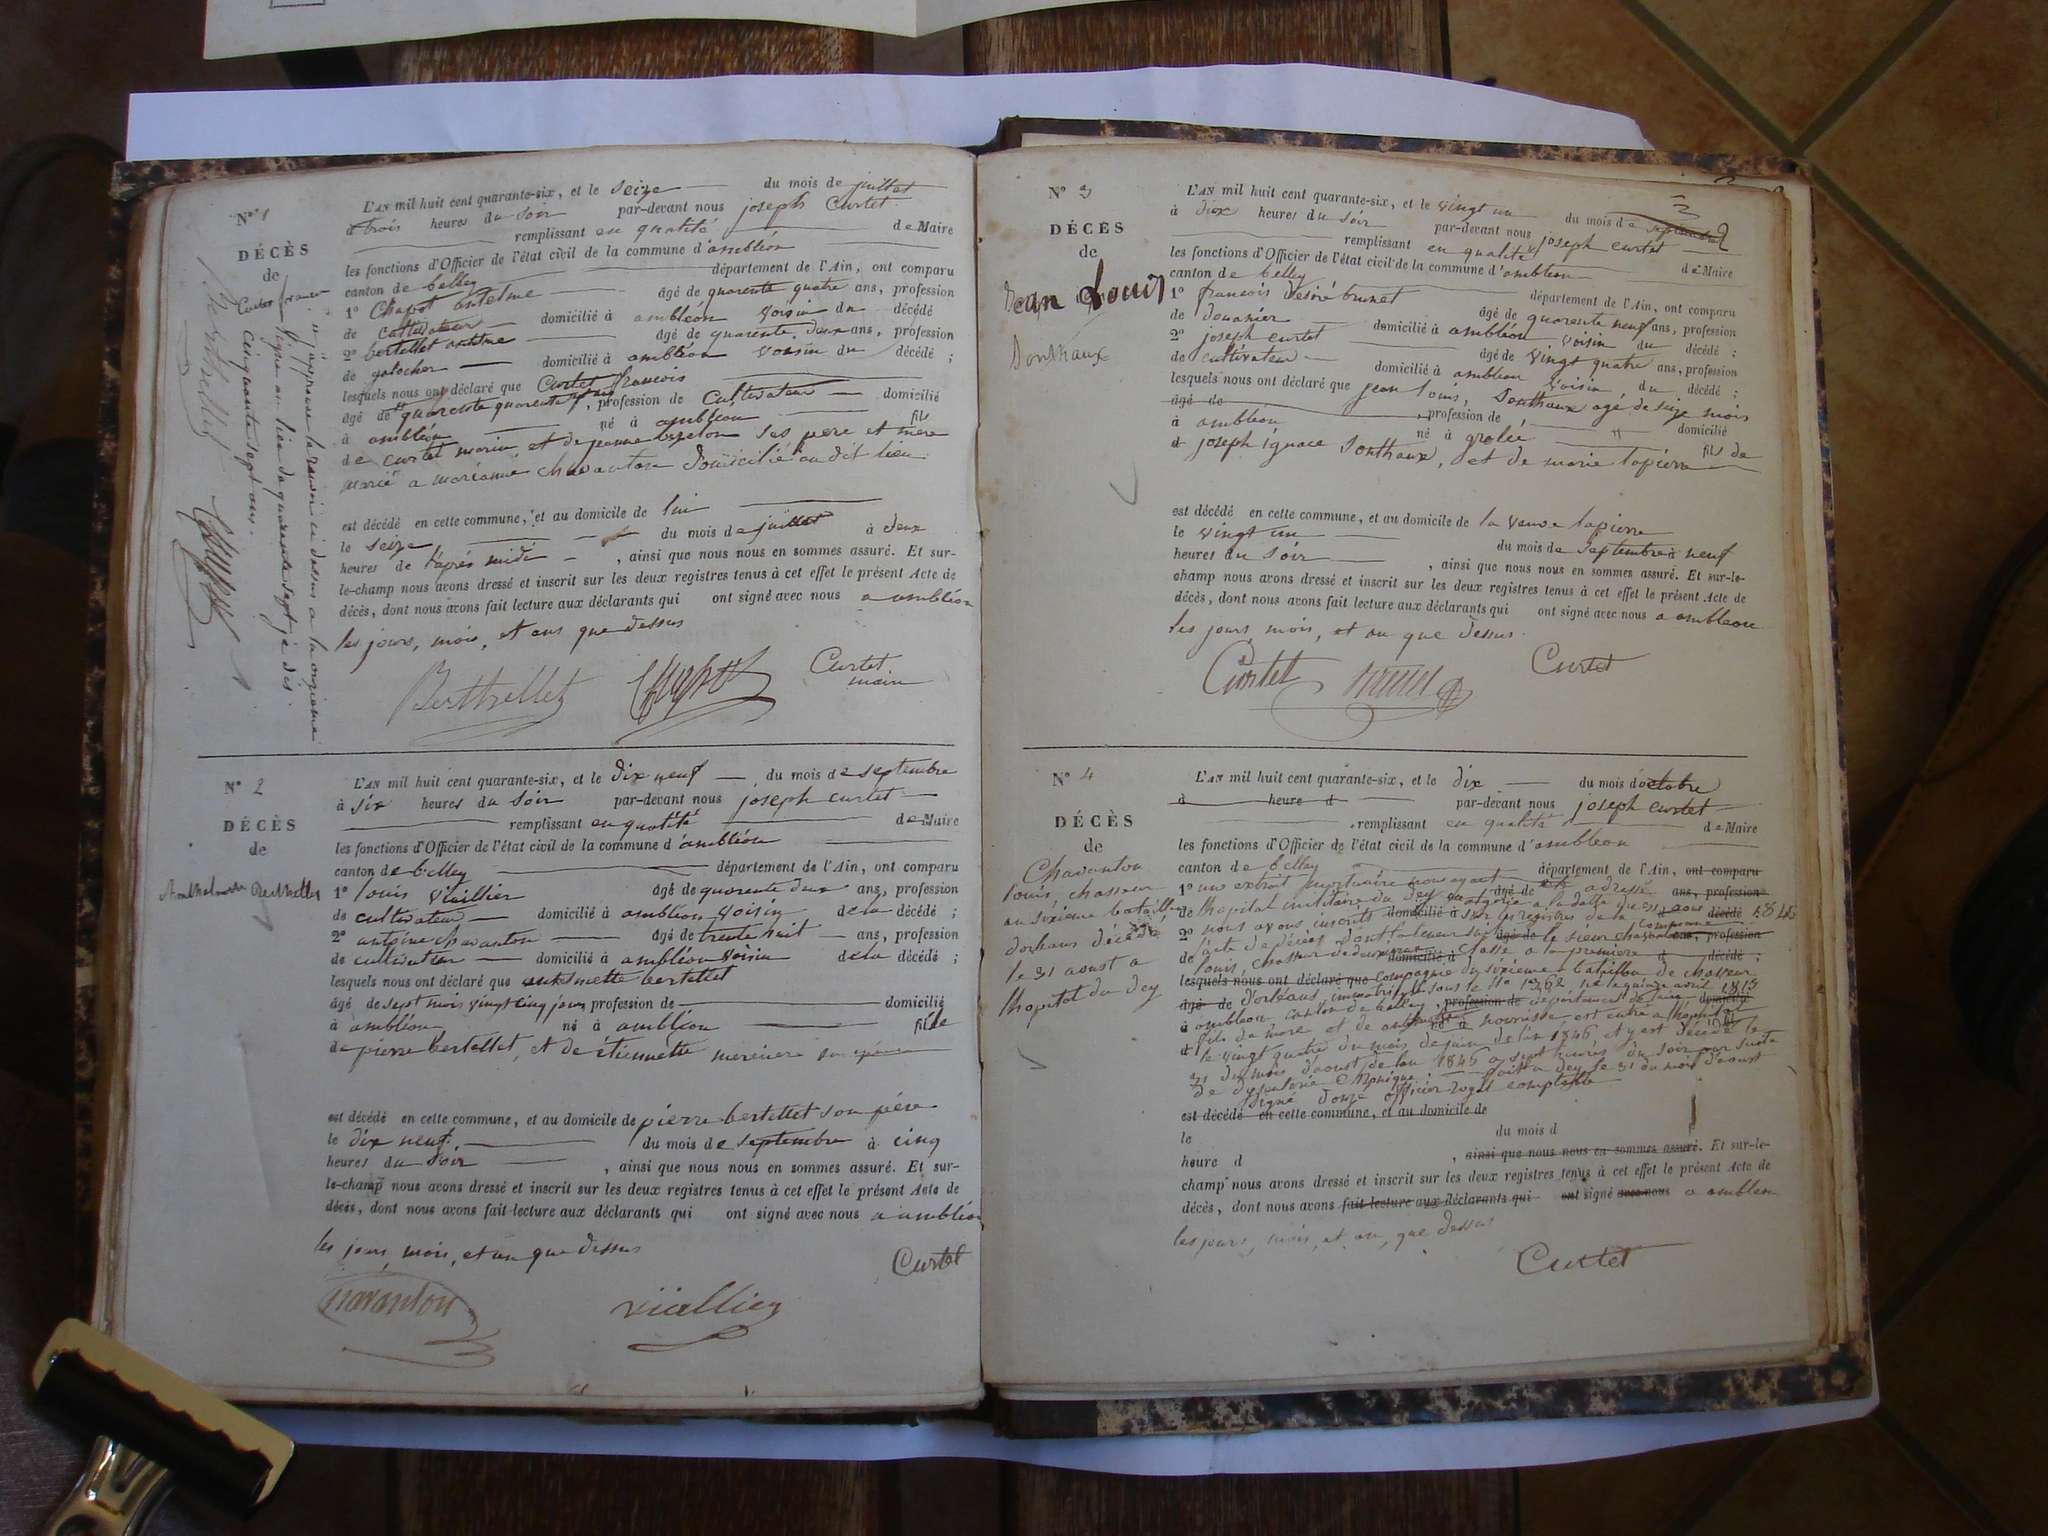 N° 1
DÉCÈS
de
Curtet francois
L'AN mil huit cent quarante-six, et le seize du mois de juillet
à trois heures du soir par-devant nous joseph Curtet
remplissant en qualité de Maire
les fonctions d'Officier de l'état civil de la commune d'ambléon
canton de belley département de l'Ain, ont comparu
1° Chapot antelme âgé de quarente quatre ans, profession
de cultivateur domicilié à ambléon voisin du décédé
2° bertellet antelme âgé de quarente deux ans, profession
de galocher domicilié à ambléon voisin du décédé ;
lesquels nous ont déclaré que Curtet francois
âgé de quarente , profession de Cultivateur domicilié
à ambléon né à ambléon fils
de curtet marin, et de jeanne ses père et mère
marié a marianne chavanton domicilié au dit lieu
est décédé en cette commune, et au domicile de lui
le seize du mois de juillet à deux
heures de l'après midi , ainsi que nous nous en sommes assuré. Et sur-
le-champ nous avons dressé et inscrit sur les deux registres tenus à cet effet le présent Acte de
décès, dont nous avons fait lecture aux déclarants qui ont signé avec nous a ambléon
les jours, mois, et ans que dessus
Berthellet Chapot Curtet
maire
cinquante sept ans.
N° 2
DÉCÈS
de
Berthellet
L'AN mil huit cent quarante-six, et le dix neuf du mois de septembre
à six heures du soir par-devant nous joseph curtet
remplissant en qualité de Maire
les fonctions d'Officier de l'état civil de la commune d'ambléon
canton de belley département de l'Ain, ont comparu
1° louis viallier âgé de quarente deux ans, profession
de cultivateur domicilié à ambléon voisin de la décédé ;
2° antoine chavanton âgé de trente huit ans, profession
de cultivateur domicilié à ambléon voisin de la décédé ;
lesquels nous ont déclaré que bertellet
âgé de sept mois vingt cinq jours profession de domicilié
à ambléon né à ambléon fille
de pierre bertellet, et de étiennette son épouse
est décédé en cette commune, et au domicile de pierre bertellet son père
le dix neuf du mois de septembre à cinq
heures du soir , ainsi que nous nous en sommes assuré. Et sur-
le-champ nous avons dressé et inscrit sur les deux registres tenus à cet effet le présent Acte de
décès, dont nous avons fait lecture aux déclarants qui ont signé avec nous a ambléon
les jours, mois, et an que dessus
Curtet
Chavanton viallier
N° 3
DÉCÈS
de
Jean Louis
L'AN mil huit cent quarante-six, et le vingt un du mois de septembre
à dix heures du soir par-devant nous joseph curtet
remplissant en qualité de Maire
les fonctions d'Officier de l'état civil de la commune d'ambléon
canton de belley département de l'Ain, ont comparu
1° francois désiré brunet âgé de quarente neuf ans, profession
de douanier domicilié à ambléon voisin du décédé ;
2° joseph curtet âgé de vingt quatre ans, profession
de cultivateur domicilié à ambléon voisin du décédé ;
lesquels nous ont déclaré que jean louis, Jonthaux agé de seize mois
âgé de , profession de domicilié
à ambléon né à grolée fils de
d joseph ignace Jonthaux, et de marie lapierre
est décédé en cette commune, et au domicile de la veuve lapierre
le vingt un du mois de septembre à neuf
heures du soir , ainsi que nous nous en sommes assuré. Et sur-le-
champ nous avons dressé et inscrit sur les deux registres tenus à cet effet le présent Acte de
décès, dont nous avons fait lecture aux déclarants qui ont signé avec nous a ambléon
les jours, mois, et an que dessus
Curtet brunet Curtet
N° 4
DÉCÈS
de
Chavanton
louis, chasseur
au sixieme bataillon
dorleans décédé
le 31 aoust a
lhopital du Dey
L'AN mil huit cent quarante-six, et le dix du mois d'octobre
à heure d par-devant nous joseph curtet
remplissant en qualité de Maire
les fonctions d'Officier de l'état civil de la commune d'ambleon
canton de belley département de l'Ain, ont comparu
1° une extrait mortuaire nous ayant âgé de été adressé ans, profession
de lhopital militaire du Dey en algerie a la date du 31 aous décédé 1846
2° nous avons inscrits sur les registres de la commune
de l'acte de décès dont la teneur suit le sieur chavanton profession
louis, chasseur de deuxieme domicilié à classe a la premiere décédé ;
lesquels nous ont déclaré que compagnie du sixieme bataillon de chasseur
âgé de d'orleans immatriculé sous le n° 1362, né le quinze avril 1813
à ambleon canton de belley, profession de département de l'ain domicilié
d fils de et de est entré a l'hopital
le vingt quatre du mois de juin de l'an 1846, et y est décédé le
31 du mois daoust de lan 1846 a sept heures du soir par suite
de dyssenterie chronique. fait a dey le 31 du mois daoust
signé officier comptable
est décédé en cette commune, et au domicile de
le du mois d
heure d , ainsi que nous nous en sommes assuré. Et sur-le-
champ nous avons dressé et inscrit sur les deux registres tenus à cet effet le présent Acte de
décès, dont nous avons fait lecture aux déclarants qui ont signé avec nous a ambleon
les jours, mois, et an, que dessus
Curtet